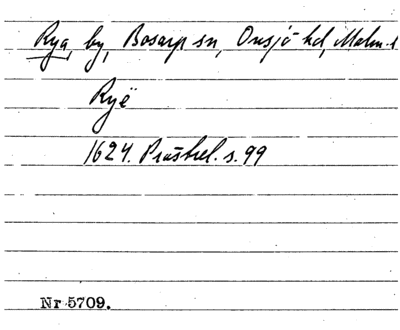 Rya, by, Bosarp sn, Onsjö hd, Malm. l
Ryë
1624. Prästrel. s. 99
Nr 5709.